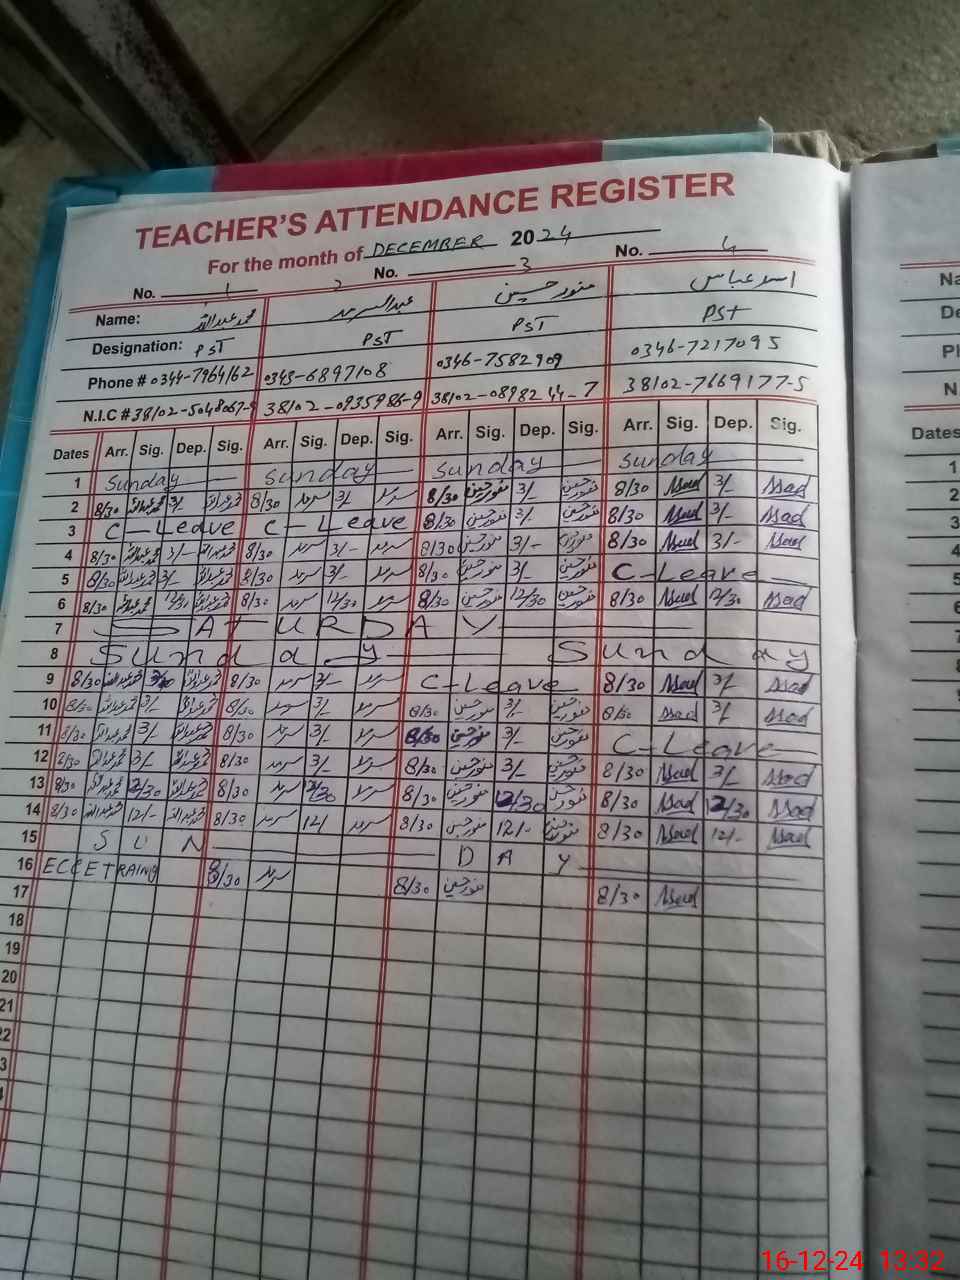 TEACHER'S ATTENDANCE REGISTER
For the month of DECEMBER 2024
No. 1 2 No. 3 No. 4
Name: محمد عبداللہ منور حسین اسد عباس
Designation: PST PST PST PST
Phone # 0344-7964162 0343-6897108 0346-7582909 0346-7217095
N.I.C # 38102-5048067-9 38102-0935986-9 38102-0898244-7 38102-7669177-5
Dates Arr. Sig. Dep. Sig. Arr. Sig. Dep. Sig. Arr. Sig. Dep. Sig. Arr. Sig. Dep. Sig.
1 Sunday Sunday Sunday Sunday
2 8/30 محمد عبداللہ 3/- محمد عبداللہ 8/30 سرمد 3/- سرمد 8/30 منور حسین 3/- منور حسین 8/30 Asad 3/- Asad
3 C-Leave C-Leave 8/30 منور حسین 3/- منور حسین 8/30 Asad 3/- Asad
4 8/30 محمد عبداللہ 3/- محمد عبداللہ 8/30 سرمد 3/- سرمد 8/30 منور حسین 3/- منور حسین 8/30 Asad 3/- Asad
5 8/30 محمد عبداللہ 3/- محمد عبداللہ 8/30 سرمد 3/- سرمد 8/30 منور حسین 3/- منور حسین C-Leave
6 8/30 محمد عبداللہ 12/30 محمد عبداللہ 8/30 سرمد 12/30 سرمد 8/30 منور حسین 12/30 منور حسین 8/30 Asad 12/30 Asad
7 SATURDAY
8 Sunday Sunday
9 8/30 محمد عبداللہ محمد عبداللہ 8/30 سرمد 3/- سرمد C-Leave 8/30 Asad 3/- Asad
10 8/30 محمد عبداللہ 3/- محمد عبداللہ 8/30 سرمد 3/- سرمد 8/30 منور حسین 3/- منور حسین 8/30 Asad 3/- Asad
11 8/30 محمد عبداللہ 3/- محمد عبداللہ 8/30 سرمد 3/- سرمد 8/30 منور حسین 3/- منور حسین C-Leave
12 8/30 محمد عبداللہ 3/- محمد عبداللہ 8/30 سرمد 3/- سرمد 8/30 منور حسین 3/- منور حسین 8/30 Asad 3/- Asad
13 8/30 محمد عبداللہ 12/30 محمد عبداللہ 8/30 سرمد 12/30 سرمد 8/30 منور حسین 12/30 منور حسین 8/30 Asad 12/30 Asad
14 8/30 محمد عبداللہ 12/- محمد عبداللہ 8/30 سرمد 12/ سرمد 8/30 منور حسین 12/- منور حسین 8/30 Asad 12/- Asad
15 SUN DAY
16 ECCE TRAING 8/30 سرمد 8/30 منور حسین 8/30 Asad
17
18
19
20
21
22
3
Na
De
Ph
N.
Dates
1
2
3
4
5
6
7
8
9
16-12-24 13:32